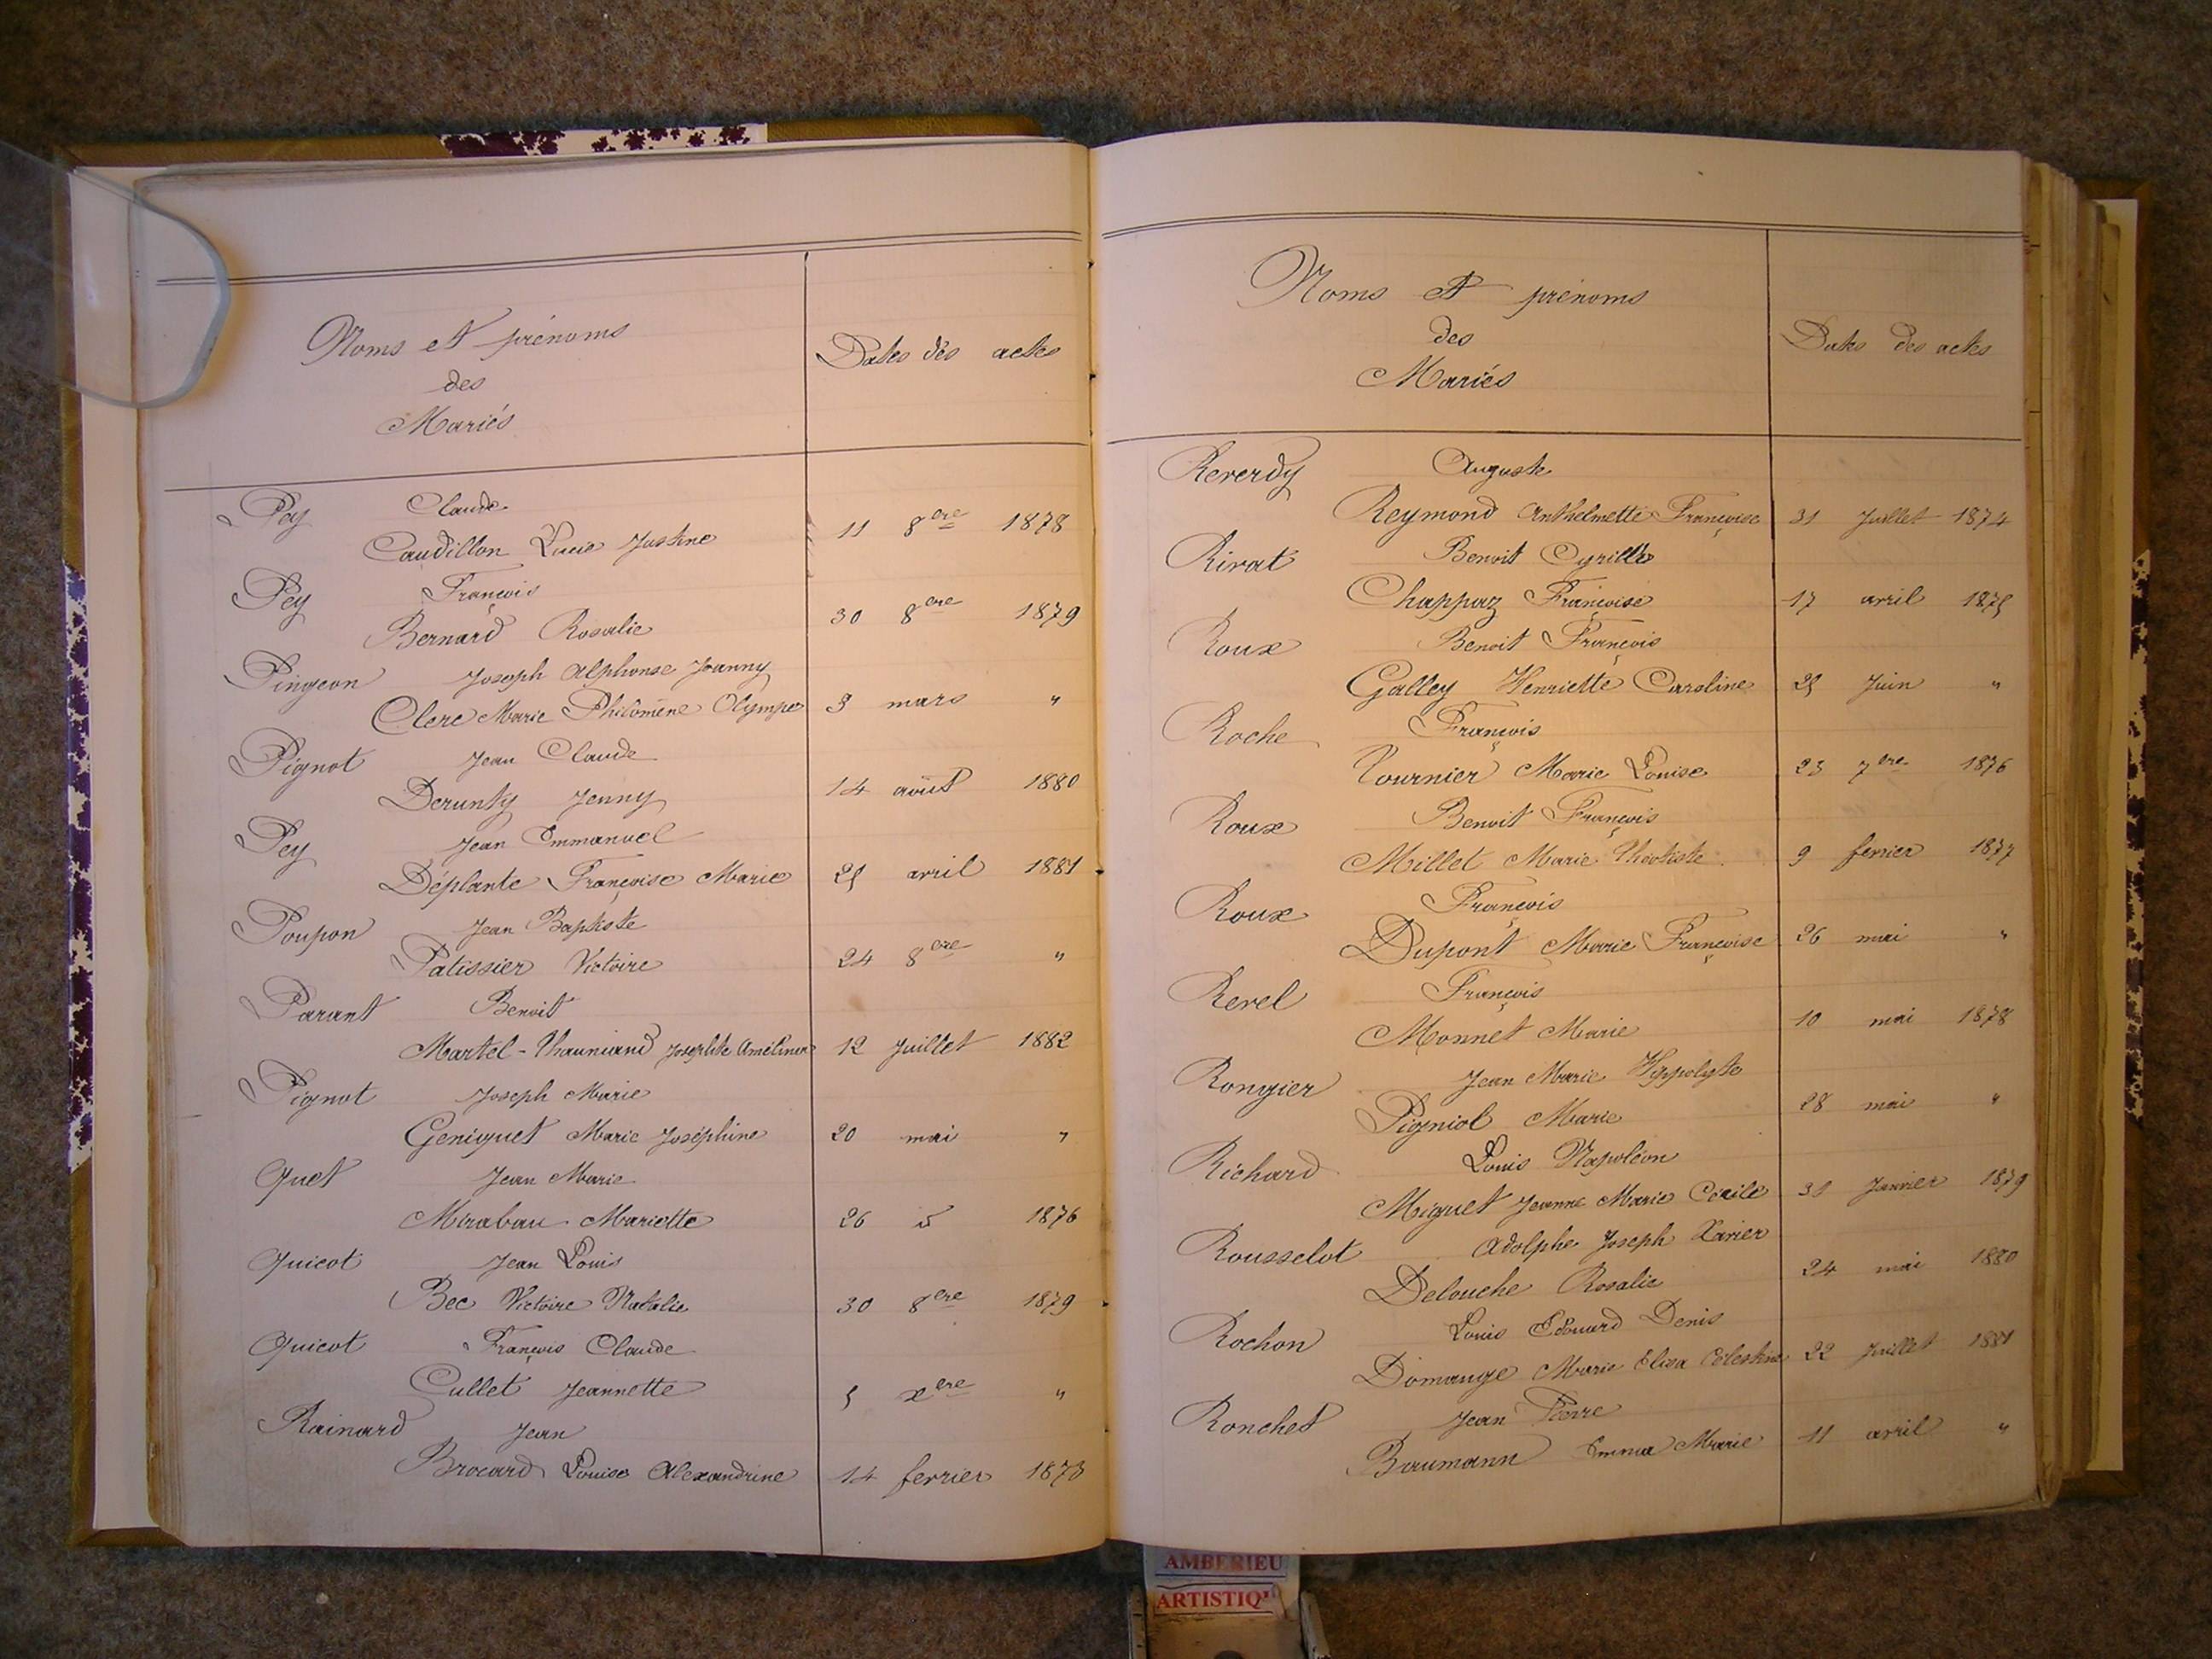 Noms et prénoms
des
Mariés
Dates des actes
Pey Claude
Caudillon Lucie Justine 11 8bre 1878
Pey François
Bernard Rosalie 30 8bre 1879
Pingeon Joseph Alphonse Joanny
Clerc Marie Philomène Olympe 3 mars "
Pignot Jean Claude
Derunty Jenny 14 août 1880
Pey Jean Emmanuel
Déplante Françoise Marie 25 avril 1881
Poupon Jean Baptiste
Patissier Victoire 24 8bre "
Parant Benoit
Martel- Joséphte 12 Juillet 1882
Pignot Joseph Marie
Geniquet Marie Joséphine 20 mai "
Quet Jean Marie
Mirabau Mariette 26 1876
Quicot Jean Louis
Bec Victoire Natalie 30 8bre 1879
Quicot François Claude
Cullet Jeannette 5 xbre "
Rainard Jean
Brocard Louise Alexandrine 14 fevrier 1873
Noms et prénoms
des
Mariés
Dates des actes
Reverdy Auguste
Reymond Anthelmette Françoise 31 Juillet 1874
Rivat Benoit Cyrille
Chappaz Françoise 17 avril 1875
Roux Benoit François
Galley Henriette Caroline 25 Juin "
Roche François
Tournier Marie Louise 23 7bre 1876
Roux Benoit François
Millet Marie Théotiste 9 fevrier 1877
Roux François
Dupont Marie Françoise 26 mai "
Revel François
Monnet Marie 10 mai 1878
Rongier Jean Marie Hippolyte
Pigniol Marie 28 mai "
Richard Louis Napoléon
Miguet Jeanne Marie Cécile 31 Janvier 1879
Rousselot Adolphe Joseph Xavier
Delouche Rosalie 24 mai 1880
Rochon Louis Edouard Denis
Domange Marie Elisa Célestine 22 Juillet 1881
Ronchet Jean Pierre
Baumann Emma Marie 11 avril "
AMBERIEU
ARTISTIQ